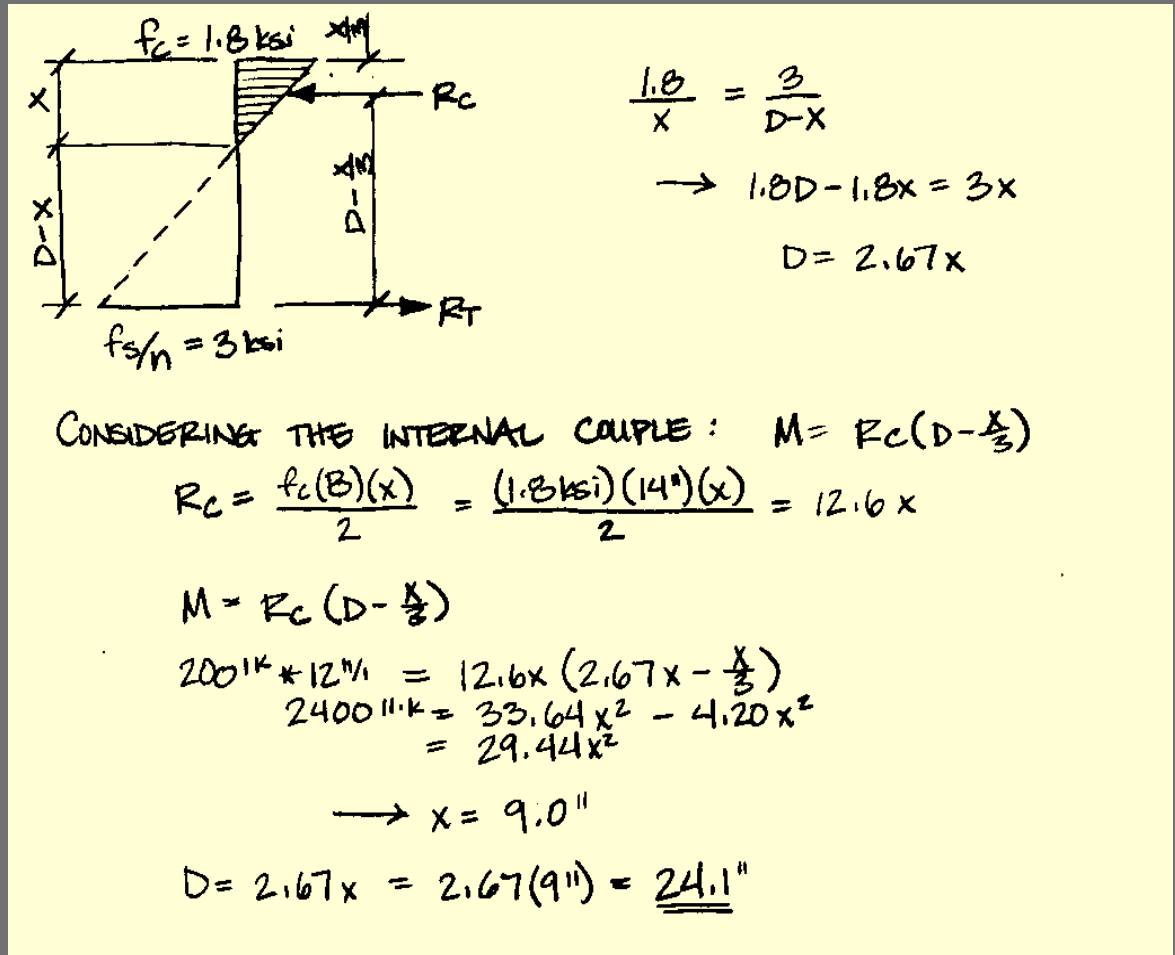 fc = 1.8 ksi
x/3
x
Rc
D-x
D-x/3
RT
fs/n = 3 ksi
1.8/x = 3/(D-x)
→ 1.8D - 1.8x = 3x
D = 2.67x
CONSIDERING THE INTERNAL COUPLE: M = Rc(D-x/3)
Rc = fc(B)(x)/2 = (1.8ksi)(14")(x)/2 = 12.6x
M = Rc(D-x/3)
200'k * 12"/' = 12.6x(2.67x - x/3)
2400"·k = 33.64x² - 4.20x²
= 29.44x²
→ x = 9.0"
D = 2.67x = 2.67(9") = 24.1"